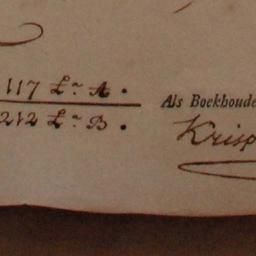 117 Lr A.
212 Lr B.
Als Boekhoude
Krisp